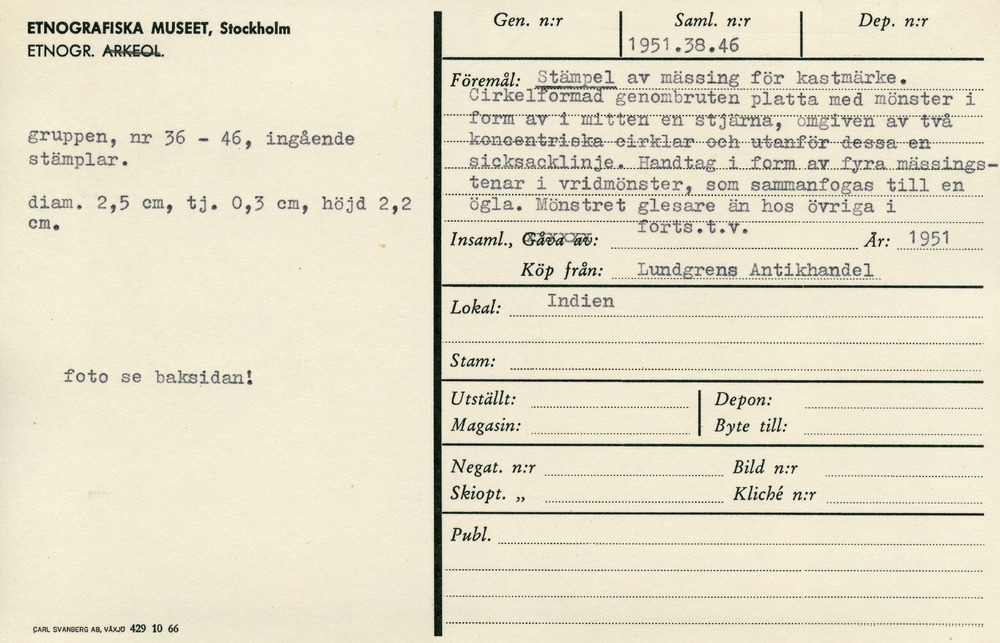 ETNOGRAFISKA MUSEET, Stockholm
ETNOGR. ARKEOL.
gruppen, nr 36 - 46, ingående
stämplar.
diam. 2,5 cm, tj. 0,3 cm, höjd 2,2
cm.
foto se baksidan!
CARL SVANBERG AB, VÄXJÖ 429 10 66
Gen. n:r
Saml. n:r
Dep. n:r
1951.38.46
Föremål: Stämpel av mässing för kastmärke.
Cirkelformad genombruten platta med mönster i
form av i mitten en stjärna, omgiven av två
koncentriska cirklar och utanför dessa en
sicksacklinje. Handtag i form av fyra mässings-
tenar i vridmönster, som sammanfogas till en
ögla. Mönstret glesare än hos övriga i
forts.t.v.
Insaml., Gåva av: År: 1951
Köp från: Lundgrens Antikhandel
Lokal: Indien
Stam:
Utställt: Depon:
Magasin: Byte till:
Negat. n:r Bild n:r
Skiopt. „ Kliché n:r
Publ.